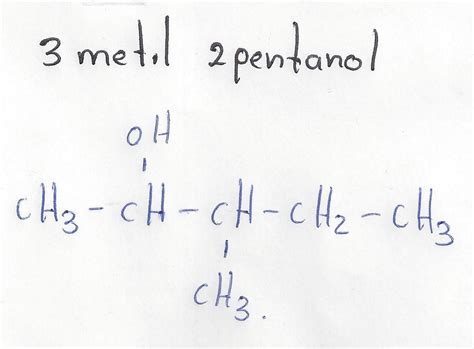 3 metil 2pentanol
OH
CH3-CH-CH-CH2-CH3
CH3.